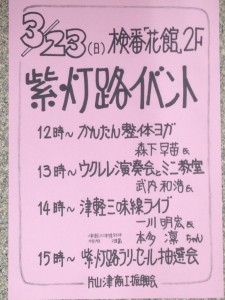 3/23(日)検番「花館」2F
紫灯路イベント
12時〜かんたん整体ヨガ
森下早苗氏
13時〜ウクレレ演奏会とミニ教室
武内和浩氏
14時〜津軽三味線ライブ
一川明宏氏
本多 凛ちゃん
15時〜紫灯路うりにもレ抽選会
片山津商工振興会